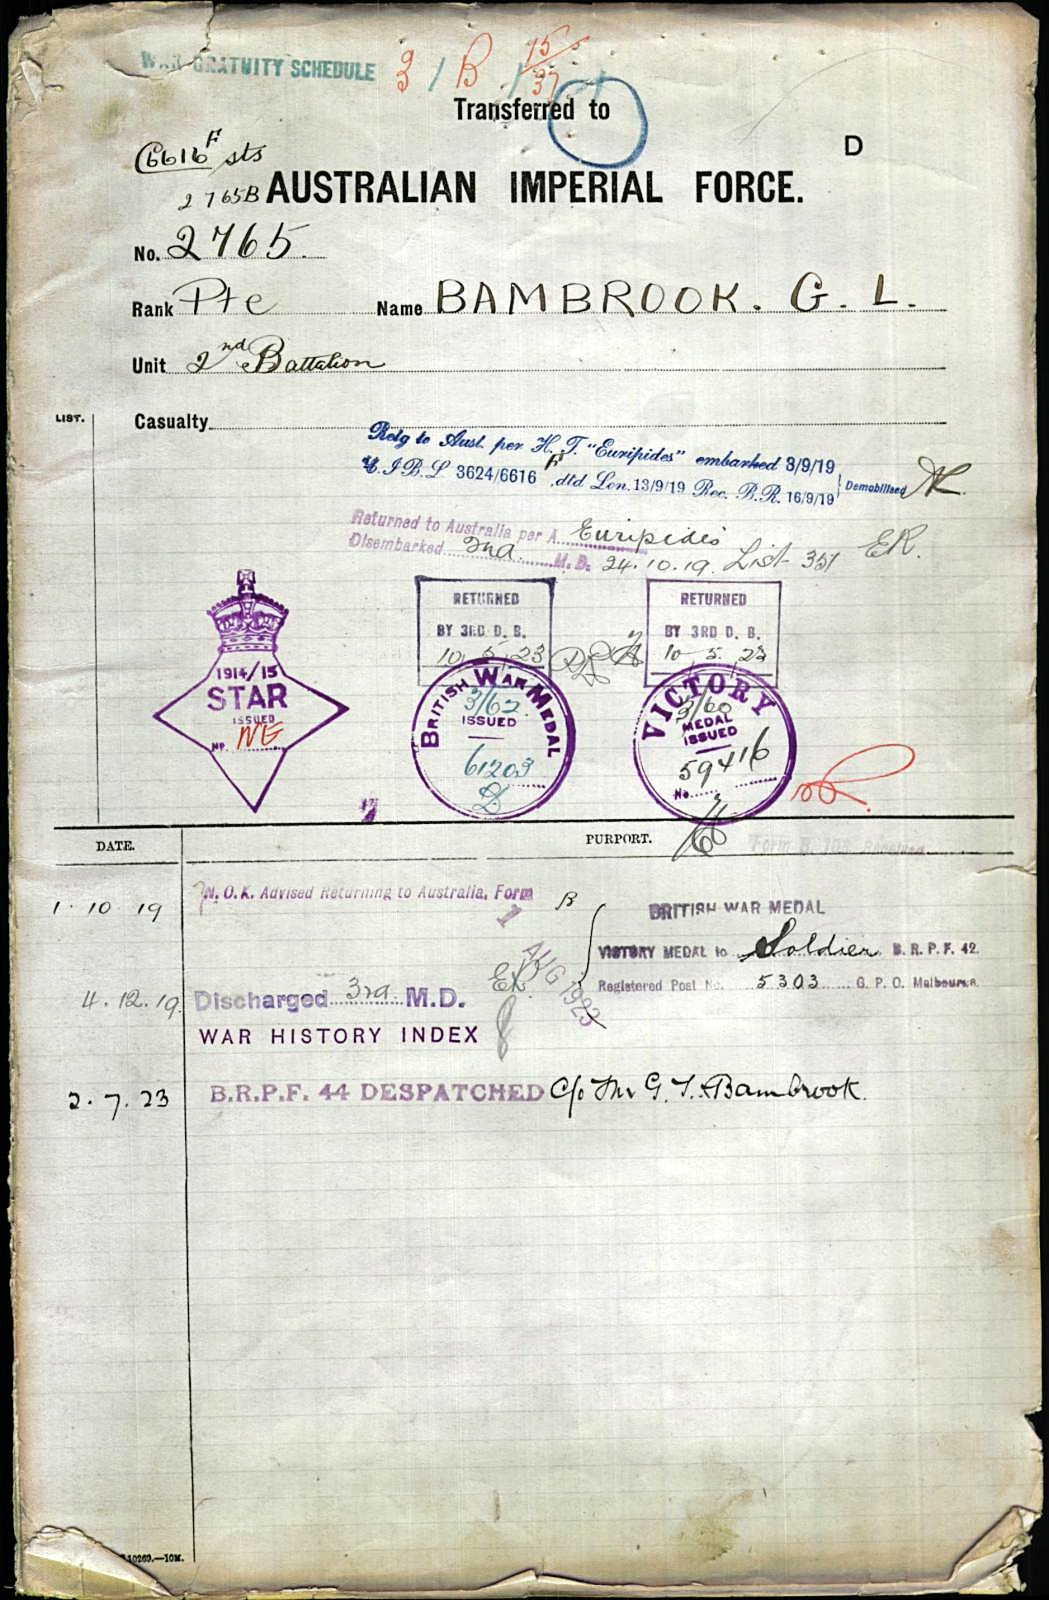 WAR GRATUITY SCHEDULE 3 / B 15/37
Transferred to
D
6616 F sts
2765B AUSTRALIAN IMPERIAL FORCE.
No. 2765.
Rank Pte Name BAMBROOK. G. L.
Unit 2nd Battalion
LIST. Casualty
Retg to Aust. per H. T. "Euripides" embarked 3/9/19
I. B. L 3624/6616 F, dtd Lon. 13/9/19 Rec. B.R. 16/9/19 Demobilised
Returned to Australia per A Euripides
Disembarked 3rd M.D. 24.10.19. List 351 ER.
RETURNED
BY 3RD D. B.
10 5 23
RETURNED
BY 3RD D. B.
10 5 23
1914/15
STAR
ISSUED
No. NE
BRITISH WAR MEDAL
3/62
ISSUED
61203
VICTORY
3/60
MEDAL
ISSUED
59416
No.
DATE. PURPORT.
Form B. 103 Received
1.10 19 N.O.K. Advised Returning to Australia, Form B
1 AUG 1923
BRITISH WAR MEDAL
VICTORY MEDAL to Soldier B. R. P. F. 42.
Registered Post No. 5303 G. P. O. Melbourne.
4.12.19 Discharged 3rd M.D. ER
WAR HISTORY INDEX
2.7.23 B.R.P.F. 44 DESPATCHED c/o Mr G. T. Bambrook.
10269.—10M.